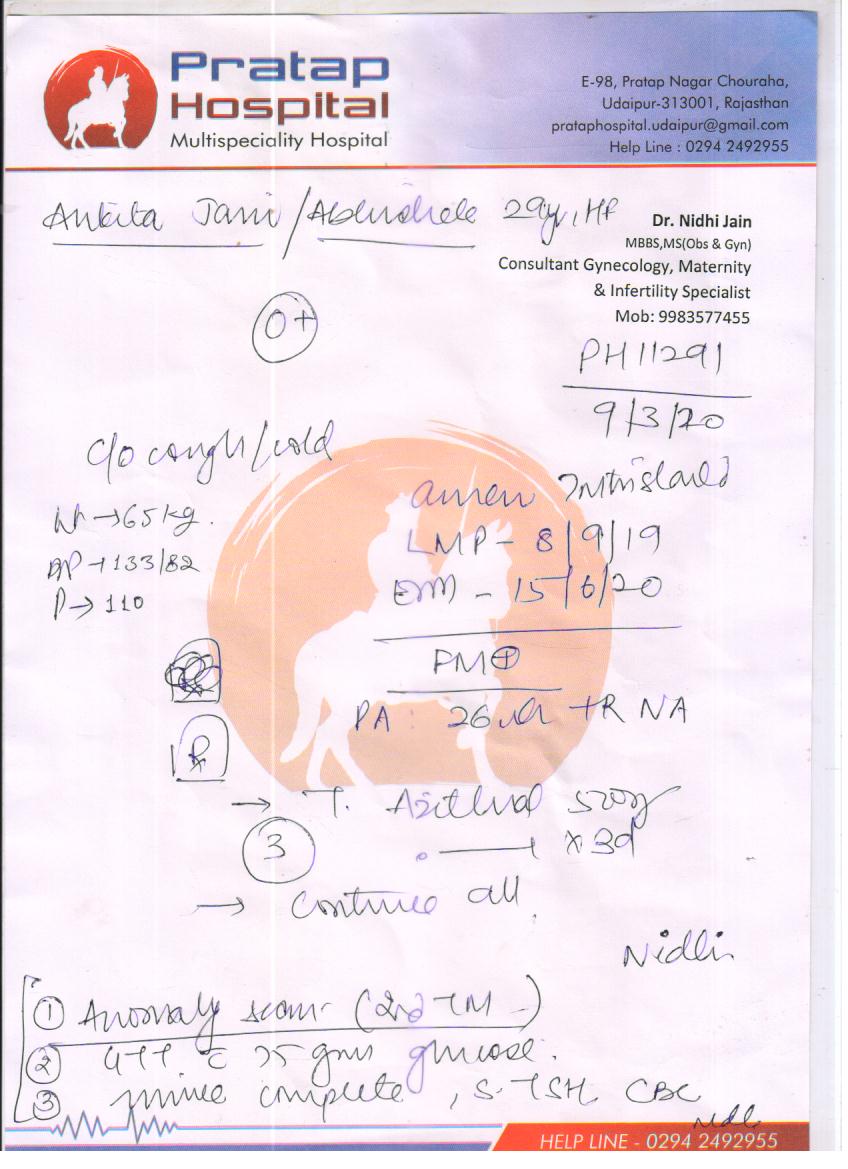 Pratap
Hospital
Multispeciality Hospital
E-98, Pratap Nagar Chouraha,
Udaipur-313001, Rajasthan
prataphospital.udaipur@gmail.com
Help Line : 0294 2492955
Ankita Jain / 29yr, HP
Dr. Nidhi Jain
MBBS,MS(Obs & Gyn)
Consultant Gynecology, Maternity
& Infertility Specialist
Mob: 9983577455
O+
PH11291
9/3/20
C/o cough/cold
Wt → 65 kg.
BP → 133/82
P → 110
LMP - 8/9/19
- 15/6/20
PM⊕
PA : 26 NA
R
→ T. 500
3
x 3d
→ Continue all
Nidhi
① Anomaly scan (2nd TM)
② GTT c 75 gms glucose.
③ urine complete, S. TSH, CBC
Nidhi
HELP LINE - 0294 2492955